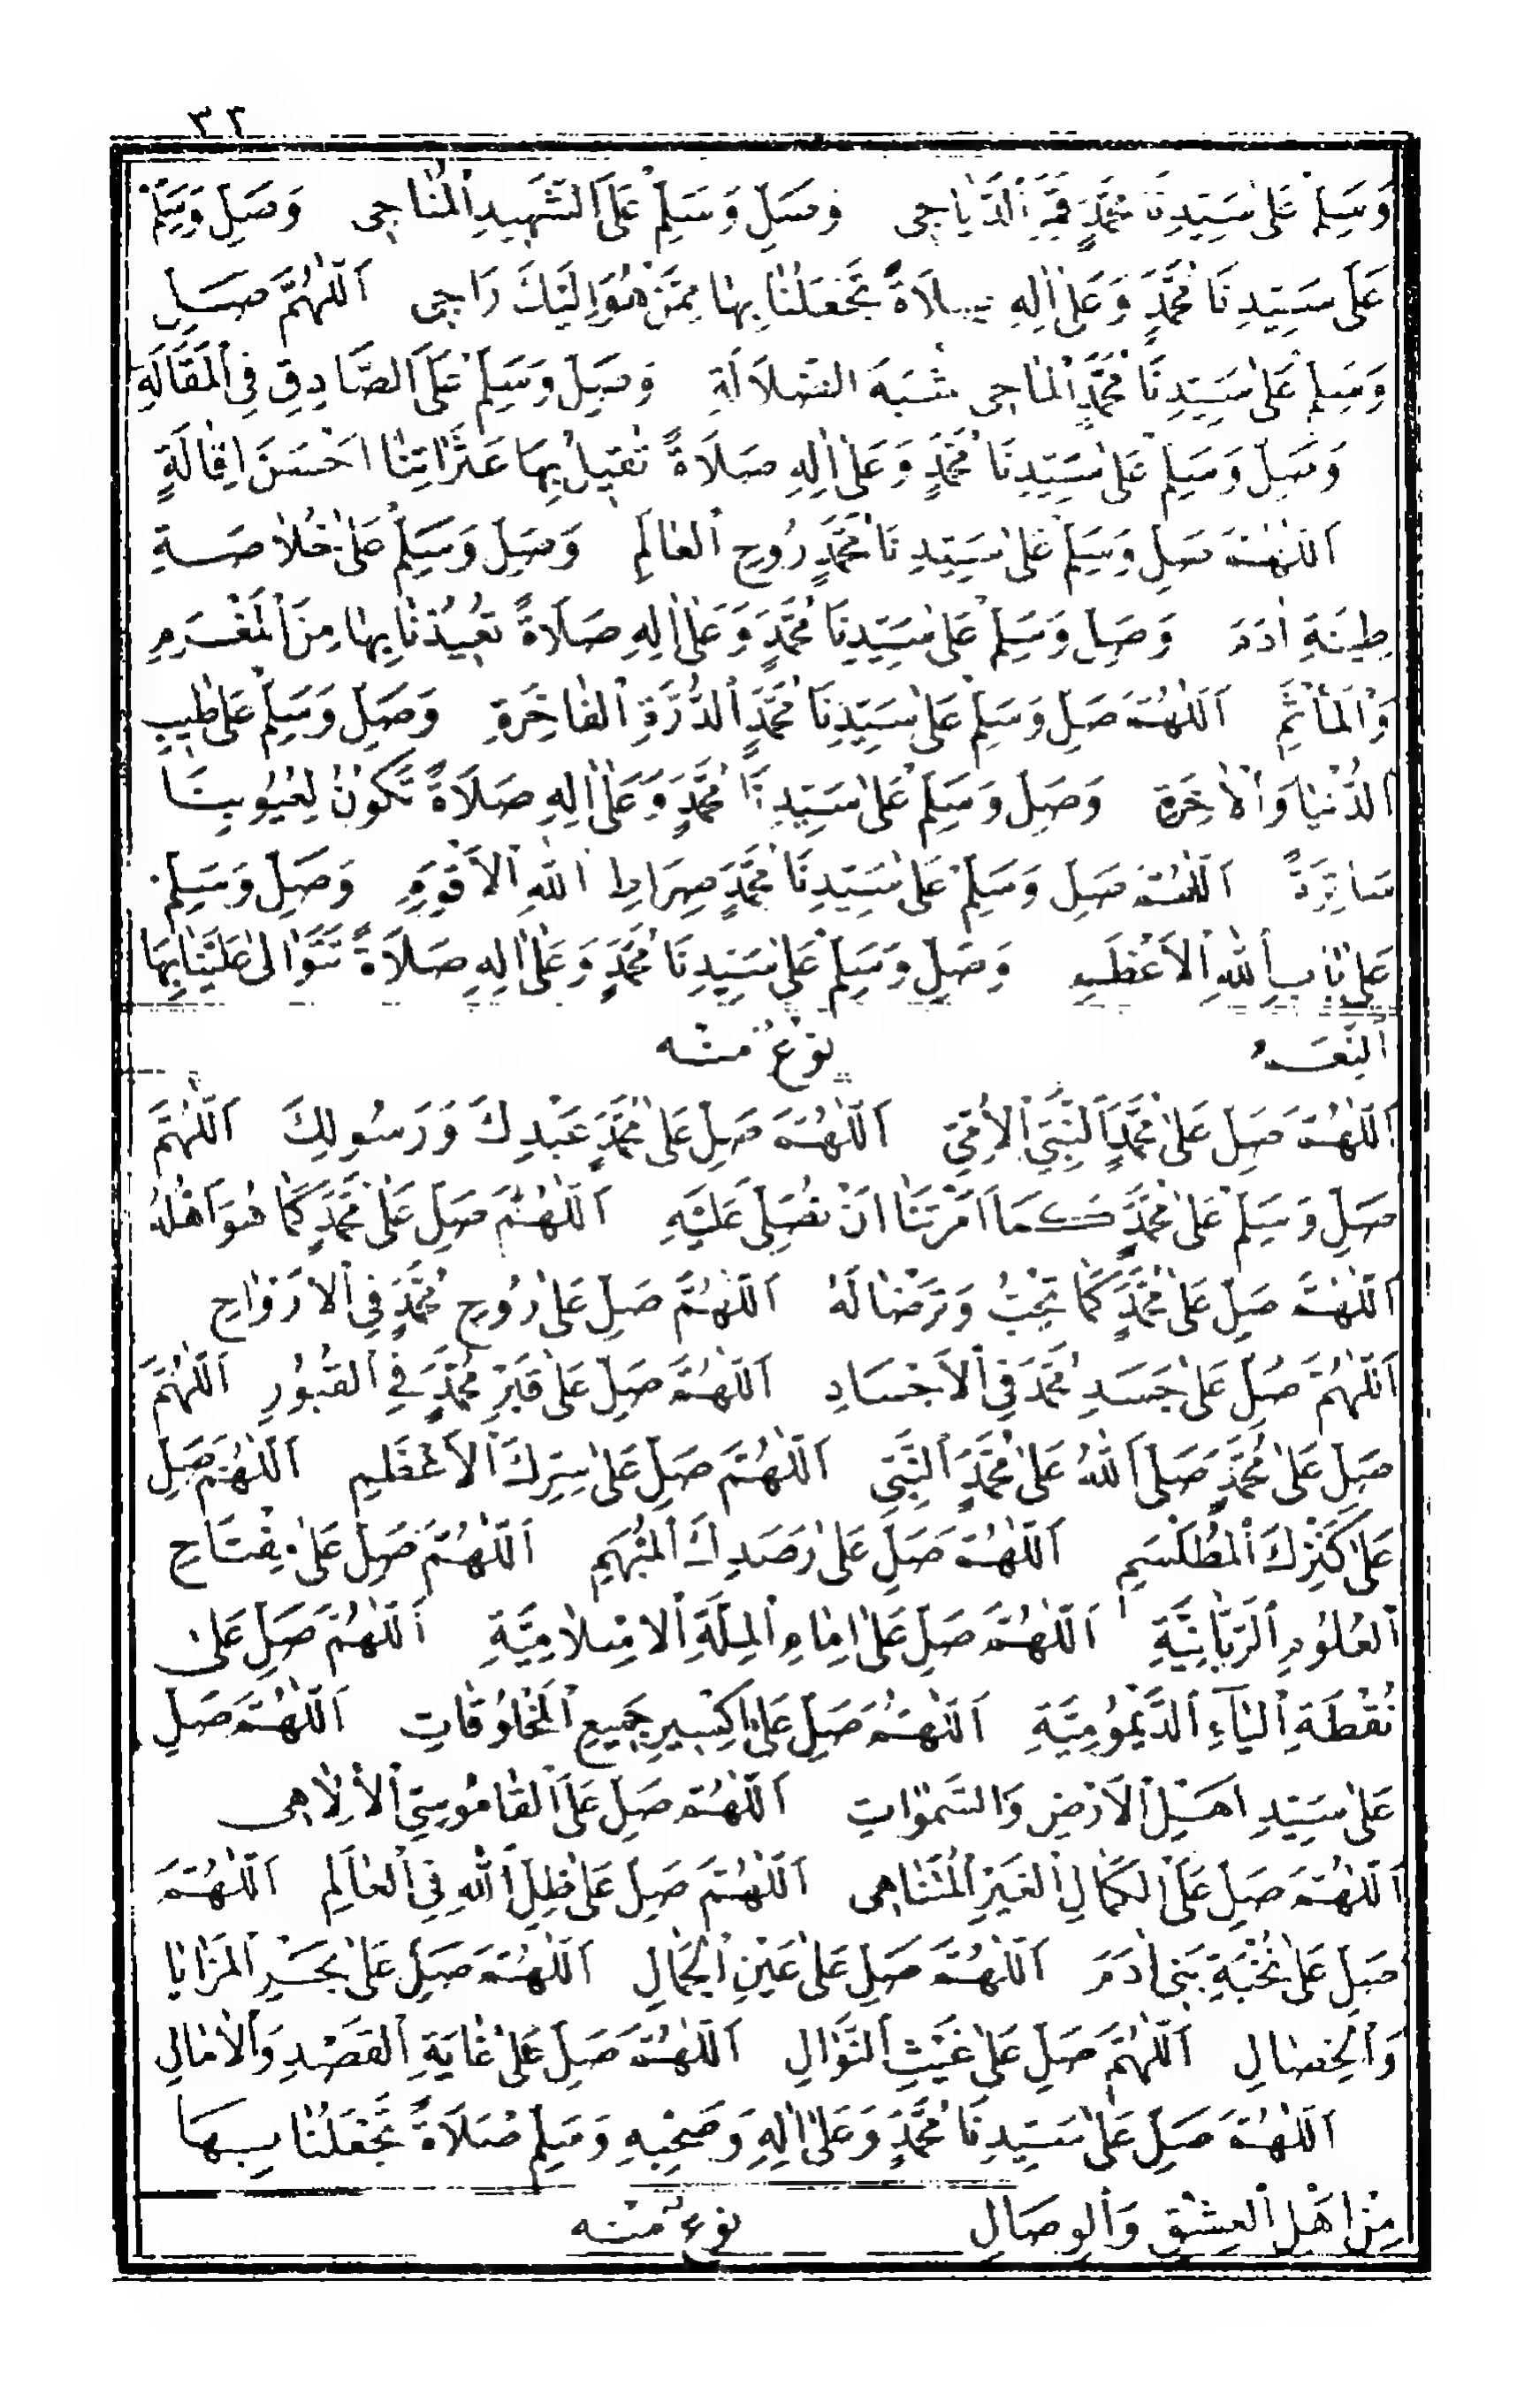 ٣٢
وَسَلِّمْ عَلٰى سَيِّدِنَا مُحَمَّدٍ قَمَرِ الدَّيَاجِى وَصَلِّ وَسَلِّمْ عَلَى الشَّهِيدِ الْمُنَاجِى وَصَلِّ وَسَلِّمْ
عَلٰى سَيِّدِنَا مُحَمَّدٍ وَعَلٰى اٰلِهِ صَلَاةً تَجْعَلُنَا بِهَا مِمَّنْ هُوَ اِلَيْكَ رَاجِى اَللّٰهُمَّ صَلِّ
وَسَلِّمْ عَلٰى سَيِّدِنَا مُحَمَّدٍ الْمَاحِى شُبَهَ الضَّلَالَةِ وَصَلِّ وَسَلِّمْ عَلَى الصَّادِقِ فِى الْمَقَالَةِ
وَصَلِّ وَسَلِّمْ عَلٰى سَيِّدِنَا مُحَمَّدٍ وَعَلٰى اٰلِهِ صَلَاةً تُقِيلُ بِهَا عَثَرَاتِنَا اَحْسَنَ اِقَالَةٍ
اَللّٰهُمَّ صَلِّ وَسَلِّمْ عَلٰى سَيِّدِنَا مُحَمَّدٍ رُوحِ الْعَالَمِ وَصَلِّ وَسَلِّمْ عَلٰى خُلَاصَةِ
طِينَةِ اٰدَمَ وَصَلِّ وَسَلِّمْ عَلٰى سَيِّدِنَا مُحَمَّدٍ وَعَلٰى اٰلِهِ صَلَاةً تُعِيذُنَا بِهَا مِنَ الْمَغْرَمِ
وَالْمَأْثَمِ اَللّٰهُمَّ صَلِّ وَسَلِّمْ عَلٰى سَيِّدِنَا مُحَمَّدٍ الدُّرَّةِ الْفَاخِرَةِ وَصَلِّ وَسَلِّمْ عَلٰى طِيبِ
الدُّنْيَا وَالْاٰخِرَةِ وَصَلِّ وَسَلِّمْ عَلٰى سَيِّدِنَا مُحَمَّدٍ وَعَلٰى اٰلِهِ صَلَاةً تَكُونُ لِعُيُوبِنَا
سَاتِرَةً اَللّٰهُمَّ صَلِّ وَسَلِّمْ عَلٰى سَيِّدِنَا مُحَمَّدٍ صِرَاطِ اللهِ الْاَقْوَمِ وَصَلِّ وَسَلِّمْ
عَلٰى بَابِ اللهِ الْاَعْظَمِ وَصَلِّ وَسَلِّمْ عَلٰى سَيِّدِنَا مُحَمَّدٍ وَعَلٰى اٰلِهِ صَلَاةً تَتَوَالٰى عَلَيْنَا بِهَا
النِّعَمُ نَوْعٌ مِنْهُ
اَللّٰهُمَّ صَلِّ عَلٰى مُحَمَّدٍ النَّبِىِّ الْاُمِّىِّ اَللّٰهُمَّ صَلِّ عَلٰى مُحَمَّدٍ عَبْدِكَ وَرَسُولِكَ اَللّٰهُمَّ
صَلِّ وَسَلِّمْ عَلٰى مُحَمَّدٍ كَمَا اَمَرْتَنَا اَنْ نُصَلِّىَ عَلَيْهِ اَللّٰهُمَّ صَلِّ عَلٰى مُحَمَّدٍ كَمَا هُوَ اَهْلُهُ
اَللّٰهُمَّ صَلِّ عَلٰى مُحَمَّدٍ كَمَا تُحِبُّ وَتَرْضَا لَهُ اَللّٰهُمَّ صَلِّ عَلٰى رُوحِ مُحَمَّدٍ فِى الْاَرْوَاحِ
اَللّٰهُمَّ صَلِّ عَلٰى جَسَدِ مُحَمَّدٍ فِى الْاَجْسَادِ اَللّٰهُمَّ صَلِّ عَلٰى قَبْرِ مُحَمَّدٍ فِى الْقُبُورِ اَللّٰهُمَّ
صَلِّ عَلٰى مُحَمَّدٍ صَلَّى اللهُ عَلٰى مُحَمَّدٍ النَّبِىِّ اَللّٰهُمَّ صَلِّ عَلٰى سِرِّكَ الْاَعْظَمِ اَللّٰهُمَّ صَلِّ
عَلٰى كَنْزِكَ الْمُطَلْسَمِ اَللّٰهُمَّ صَلِّ عَلٰى رَصَدِكَ الْمُبْهَمِ اَللّٰهُمَّ صَلِّ عَلٰى مِفْتَاحِ
الْعُلُومِ الرَّبَّانِيَّةِ اَللّٰهُمَّ صَلِّ عَلٰى اِمَامِ الْمِلَّةِ الْاِسْلَامِيَّةِ اَللّٰهُمَّ صَلِّ عَلٰى
نُقْطَةِ الْيَاءِ الدَّيْمُومِيَّةِ اَللّٰهُمَّ صَلِّ عَلٰى اِكْسِيرِ جَمِيعِ الْمَخْلُوقَاتِ اَللّٰهُمَّ صَلِّ
عَلٰى سَيِّدِ اَهْلِ الْاَرْضِ وَالسَّمٰوَاتِ اَللّٰهُمَّ صَلِّ عَلَى الْقَامُوسِىِّ الْاِلٰهِى
اَللّٰهُمَّ صَلِّ عَلَى الْكَمَالِ الْغَيْرِ الْمُتَنَاهِى اَللّٰهُمَّ صَلِّ عَلٰى ظِلِّ اللهِ فِى الْعَالَمِ اَللّٰهُمَّ
صَلِّ عَلٰى نُخْبَةِ بَنِى اٰدَمَ اَللّٰهُمَّ صَلِّ عَلٰى عَيْنِ الْجَمَالِ اَللّٰهُمَّ صَلِّ عَلٰى بَحْرِ الْمَزَايَا
وَالْخِصَالِ اَللّٰهُمَّ صَلِّ عَلٰى غَيْثِ النَّوَالِ اَللّٰهُمَّ صَلِّ عَلٰى غَايَةِ الْقَصْدِ وَالْاٰمَالِ
اَللّٰهُمَّ صَلِّ عَلٰى سَيِّدِنَا مُحَمَّدٍ وَعَلٰى اٰلِهِ وَصَحْبِهِ وَسَلِّمْ صَلَاةً تَجْعَلُنَا بِهَا
مِنْ اَهْلِ الْعِشْقِ وَالْوِصَالِ نَوْعٌ مِنْهُ